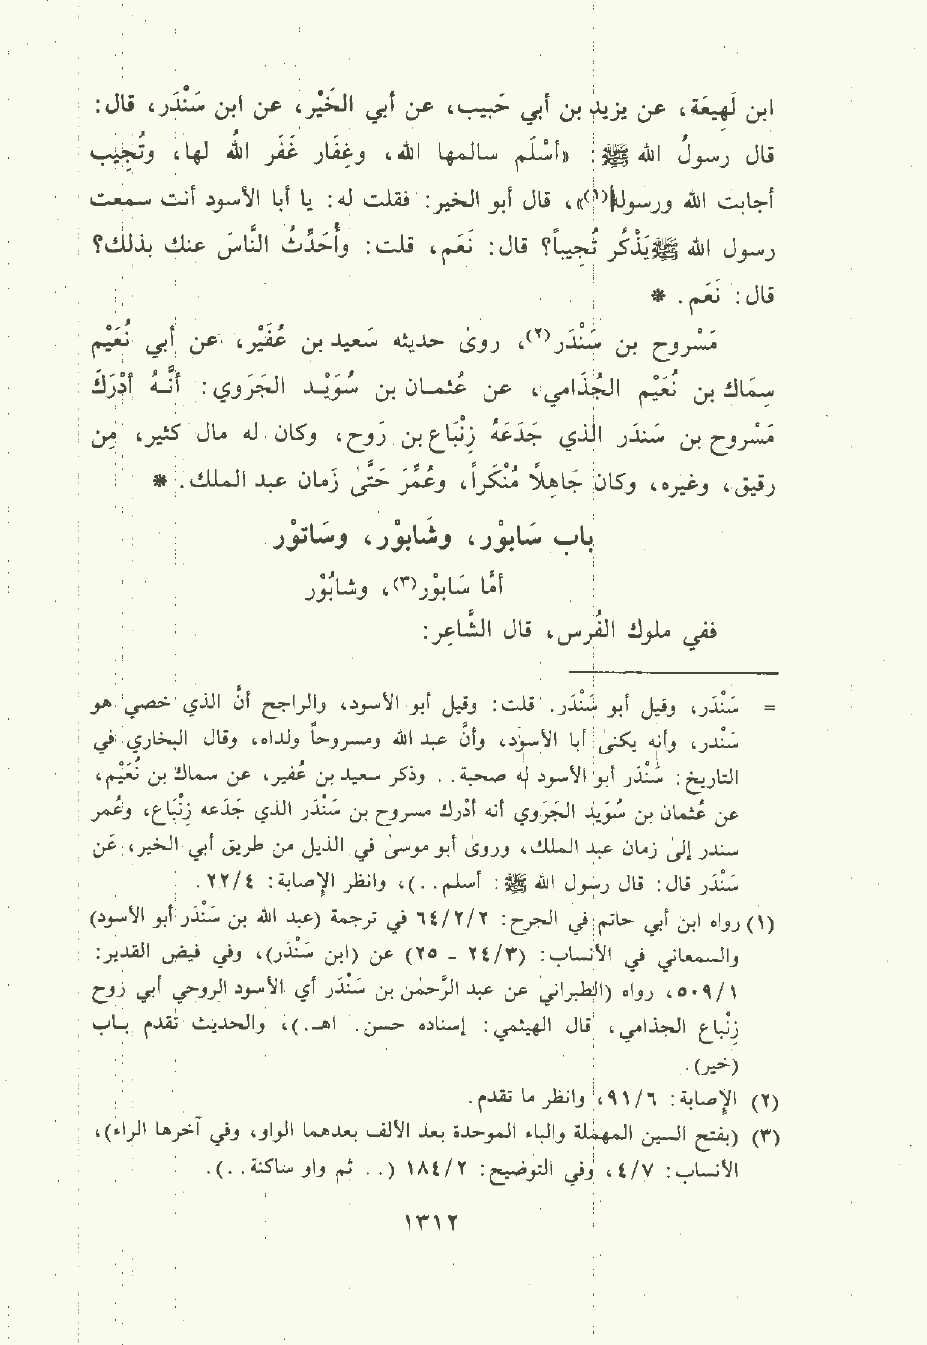 ابن لَهِيعَة، عن يزيد بن أبي حَبيب، عن أبي الخَيْر، عن ابن سَنْدَر، قال:
قال رسولُ الله ﷺ: «أسْلَم سالمها الله، وغِفار غَفَر اللهُ لها، وتُجِيْب
أجابت الله ورسوله(١)»، قال أبو الخير: فقلت له: يا أبا الأسود أنت سمعت
رسول الله ﷺ يَذْكُر تُجِيباً؟ قال: نَعَم، قلت: وأُحَدِّثُ النَّاسَ عنك بذلك؟
قال: نَعَم. *
مَسْروح بن سَنْدَر(٢)، روىٰ حديثه سَعيد بن عُفَيْر، عن أبي نُعَيْم
سِمَاك بن نُعَيْم الجُذامي، عن عُثمان بن سُوَيْد الجَرَوي: أنَّه أدْرَكَ
مَسْروح بن سَندَر الذي جَدَعَهُ زِنْبَاع بن رَوح، وكان له مال كثير، مِن
رقيق، وغيره، وكان جَاهِلاً مُنْكَراً، وعُمِّرَ حَتَّى زمان عبد الملك. *
باب سَابوْر، وشَابوْر، وسَاتوْر
أمَّا سَابوْر(٣)، وشابُوْر
ففي ملوك الفُرس، قال الشَّاعِر:
= سَنْدَر، وقيل أبو سَنْدَر. قلت: وقيل أبو الأسود، والراجح أنَّ الذي خصي هو
سَنْدر، وأنه يكنىٰ أبا الأسود، وأنَّ عبد الله ومسروحاً ولداه، وقال البخاري في
التاريخ: سَنْدَر أبو الأسود له صحبة.. وذكر سعيد بن عُفير، عن سماك بن نُعَيْم،
عن عُثمان بن سُوَيد الجَرَوي أنه أدْرك مسروح بن سَنْدَر الذي جَدَعه زِنْبَاع، وعُمر
سندر إلى زمان عبد الملك، وروىٰ أبو موسىٰ في الذيل من طريق أبي الخير، عَن
سَنْدَر قال: قال رسول الله ﷺ: أسلم..)، وانظر الإصابة: ٢٢/٤.
(١) رواه ابن أبي حاتم في الجرح: ٦٤/٢/٢ في ترجمة (عبد الله بن سَنْدَر أبو الأسود)
والسمعاني في الأنساب: (٢٤/٣ - ٢٥) عن (ابن سَنْدَر)، وفي فيض القدير:
٥٠٩/١، رواه (الطبراني عن عبد الرَّحمٰن بن سَنْدَر أي الأسود الروحي أبي زوح
زِنْباع الجذامي، قال الهيثمي: إسناده حسن. اهـ.)، والحديث تقدم بـاب
(خير).
(٢) الإصابة: ٩١/٦، وانظر ما تقدم.
(٣) (بفتح السين المهملة والباء الموحدة بعد الألف بعدهما الواو، وفي آخرها الراء)،
الأنساب: ٤/٧، وفي التوضيح: ١٨٤/٢ (.. ثم واو ساكنة..).
١٣١٢